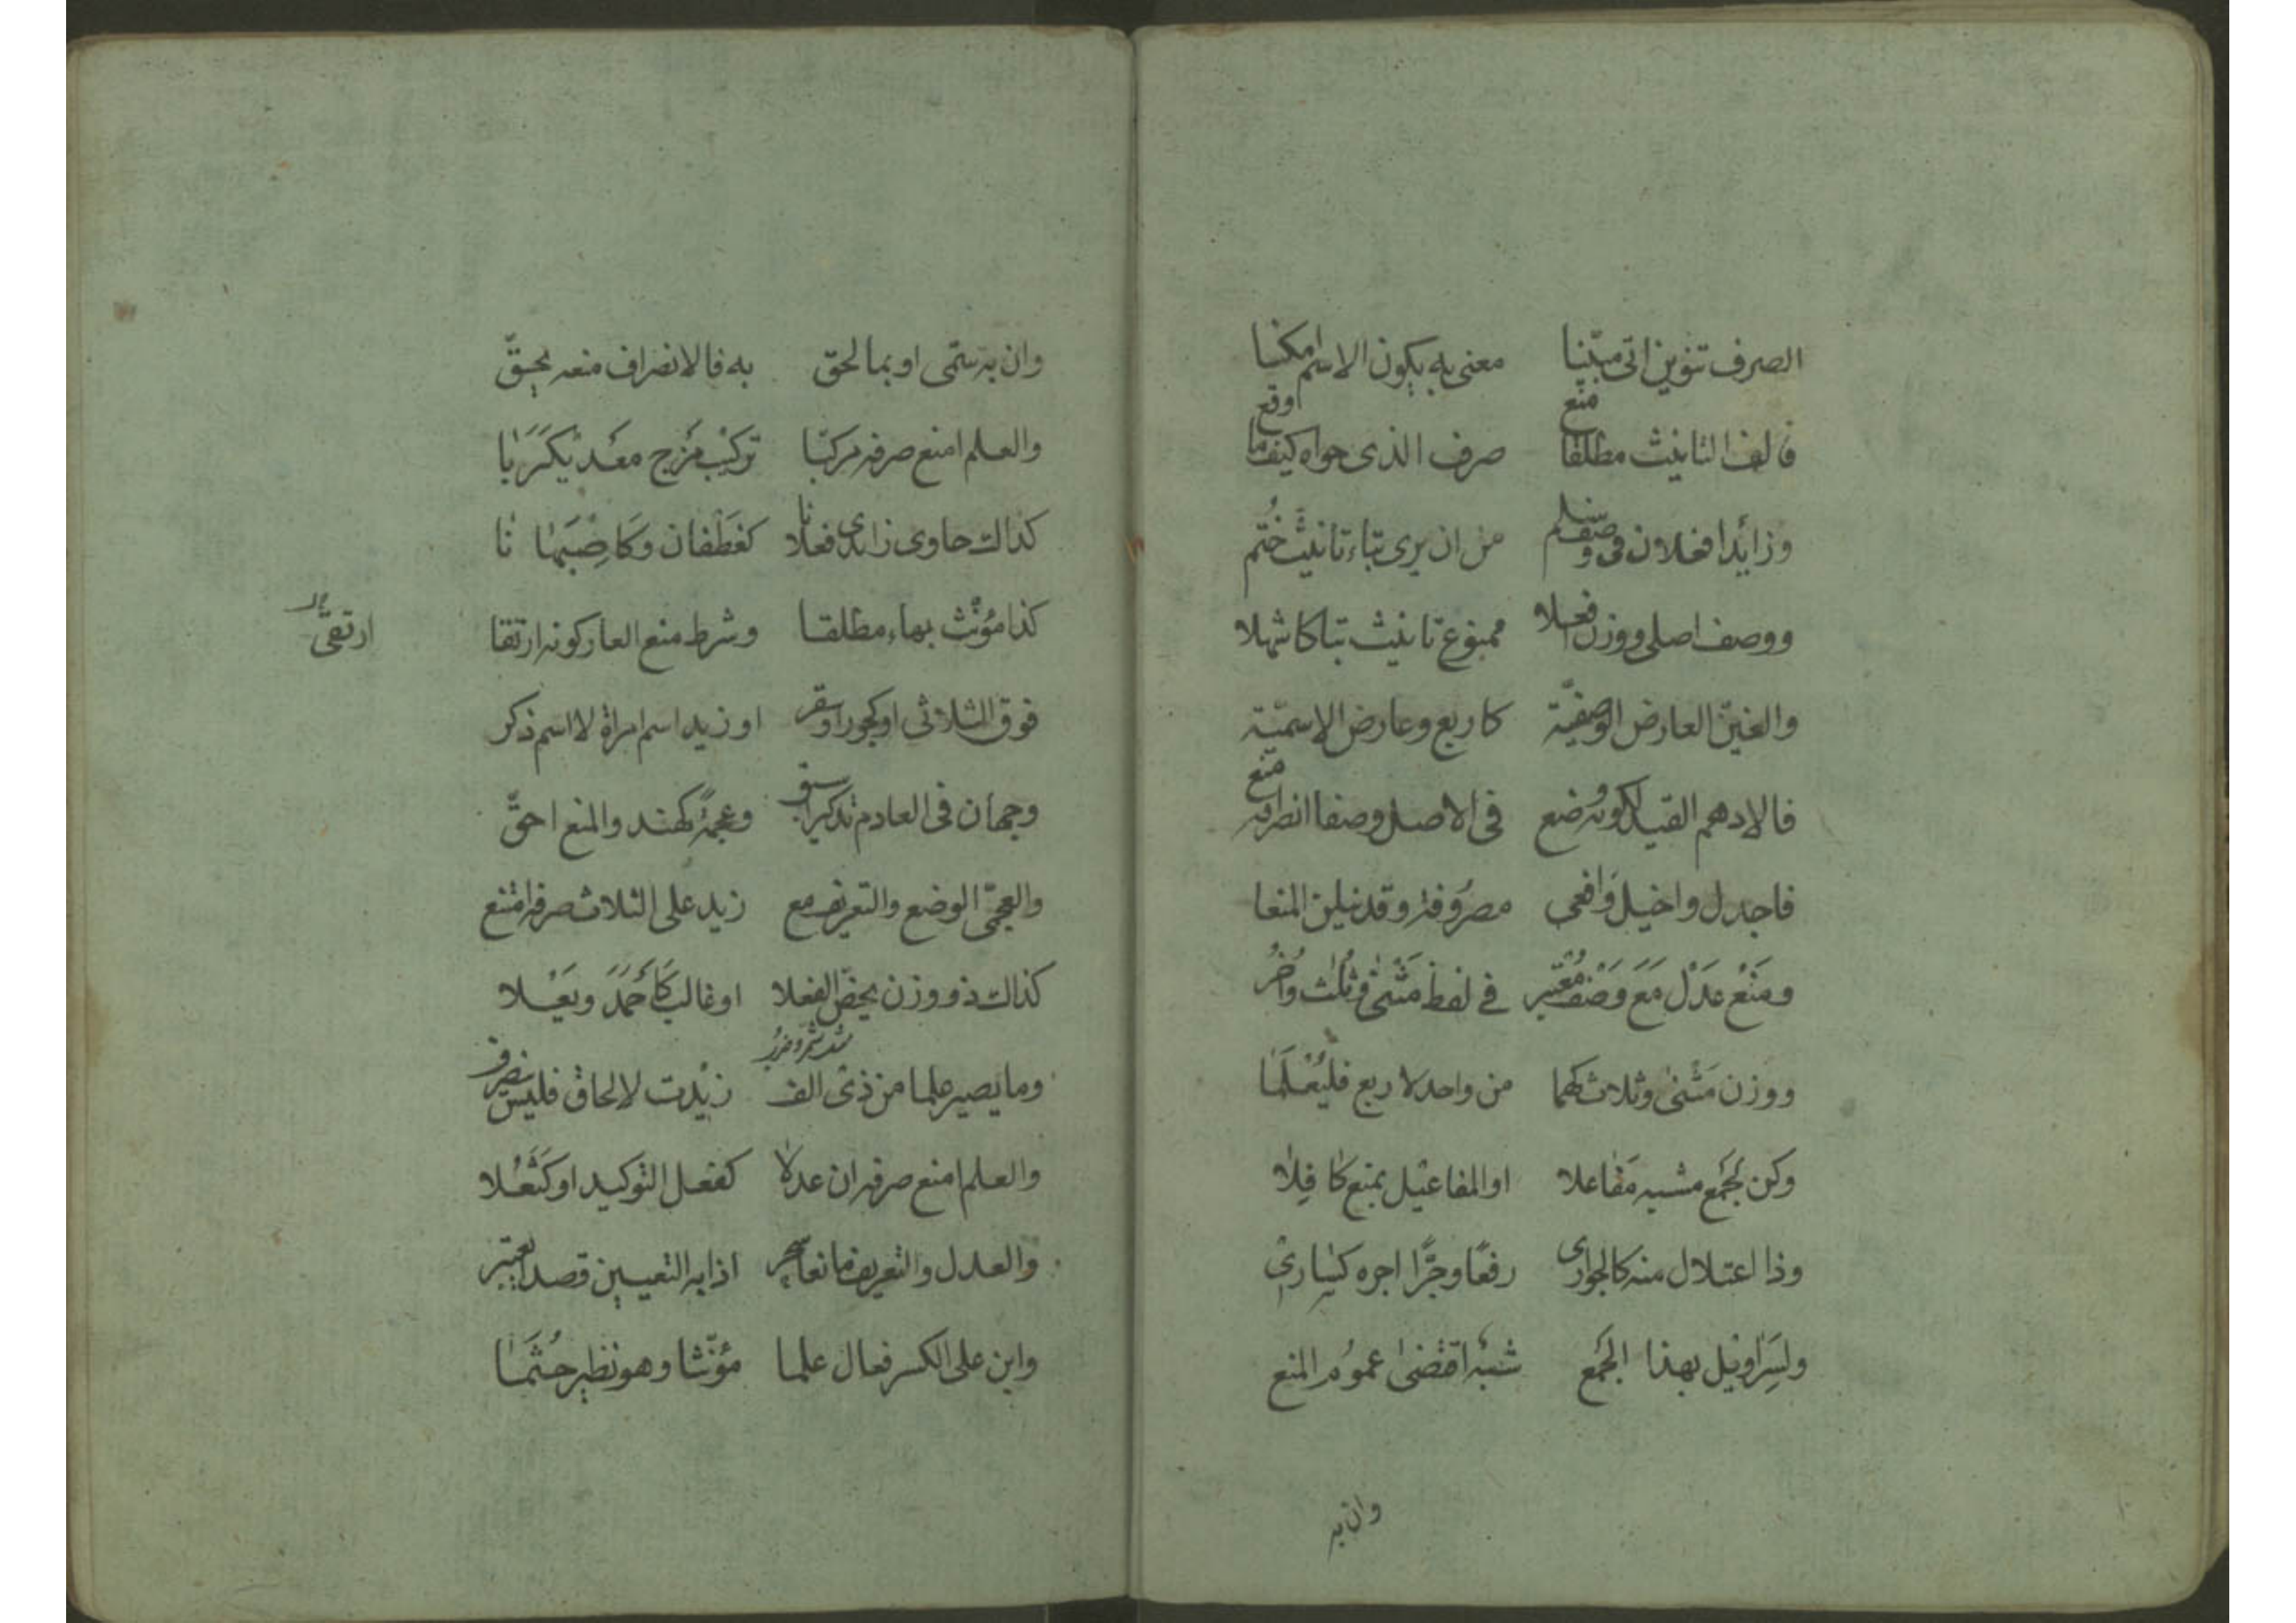 الصرف تنوين اتى مبينا معنى به يكون الاسم امكنا
فالف التانيث مطلقا منع صرف الذى حواه كيفما وقع
وزائدا فعلان فى وصف سلم من ان يرى بتاء تانيث ختم
ووصف اصلى ووزن افعلا ممنوع تانيث بتا كاشهلا
والغين العارض الوصفيّة كاربع وعارض الاسميّة
فالادهم القيد لكونه وضع فى الاصل وصفا انصرافه منع
فاجدل واخيل وَافعى مصرُوفة وقد ينلن المنعا
ومَنْعُ عَدْل مَعَ وَصْف مُعْتبر فى لفظ مَثْنىٰ وثُلٰث وَاُخَرُ
ووزن مَثْنىٰ وثلاث كهما من واحد لاربع فليُعْلَمَا
وكن لجَمْع مشبه مَفَاعلا او المفاعيْل بمنع كَافِلا
وذا اعتلال منه كالجوارى رفعًا وجَرًّا اجره كسَارىْ
ولسَرَاويْل بهذا الجَمْع شبْه اقتضىٰ عمُوم المنع
وان به
وان به سمّى او بما لحق به فالانصراف منعه يحِقّ
والعلم امنع صرفه مركبّا تركيْب مَزْج معَد يْكَرَبَا
كذاك حاوى زايدى فعلانا كغَطَفَان وكَاصْبَهَا نَا
كذا مُؤنّث بهاء مطلقا وشرط منع العار كونه ارتقا
ارتقى
فوق الثلاثى او كجور او سقر او زيد اسم امراة لا اسم ذكر
وجهان فى العادم تذكيرا سبق وعجمةً كهند والمنع احقّ
والعجمىّ الوضع والتعريف مع زيد على الثلاث صرفه امتنع
كذاك ذو وزن يخصّ الفعلا او غالب كَاَحْمَدَ ويَعْلا
وما يصير علما من ذى الف زيْدت لالحاق فليس ينصرف
والعلم امنع صرفه ان عدلا كفعل التوكيد او كَثُعَلا
والعدل والتعريف مانعا سحر اذا به التعيين قصدا يعتبر
وابن على الكسر فعال علما مؤنّثا وهو نظير جُشَمَا